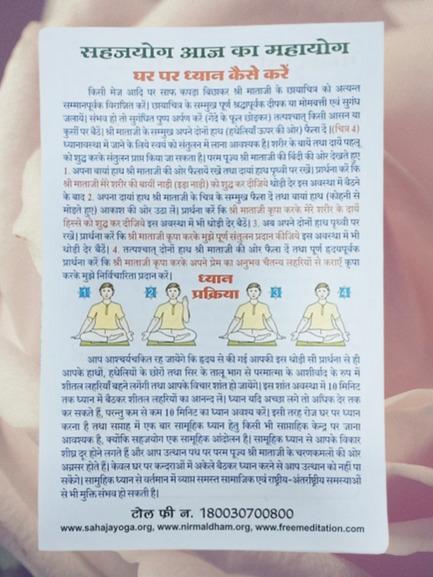 सहजयोग आज का महायोग
घर पर ध्यान कैसे करें
किसी मेज आदि पर साफ कपड़ा बिछाकर श्री माताजी के छायाचित्र को अत्यन्त
सम्मानपूर्वक विराजित करें। छायाचित्र के सम्मुख पूर्ण श्रद्धापूर्वक दीपक या मोमबत्ती एवं सुगंध
जलायें। संभव हो तो सुगंधित पुष्प अर्पण करें (गेंदे के फूल छोड़कर) तत्पश्चात् किसी आसन या
कुर्सी पर बैठें। श्री माताजी के सम्मुख अपने दोनों हाथ (हथेलियाँ ऊपर की ओर) फैला दें।(चित्र 4)
ध्यानावस्था में जाने के लिये स्वयं को संतुलन में लाना आवश्यक है। शरीर के बायें तथा दायें पहलू
को शुद्ध करके संतुलन प्राप्त किया जा सकता है। परम पूज्य श्री माताजी की बिंदी की ओर देखते हुए
1. अपना बायां हाथ श्री माताजी की ओर फैलायें रखें तथा दायां हाथ पृथ्वी पर रखें। प्रार्थना करें कि
श्री माताजी मेरे शरीर की बायीं नाड़ी (इड़ा नाड़ी) को शुद्ध कर दीजिये थोड़ी देर इस अवस्था में बैठने
के बाद 2. अपना दायां हाथ श्री माताजी के चित्र के सम्मुख फैला दें तथा बायां हाथ (कोहनी से
मोड़ते हुए) आकाश की ओर उठा लें। प्रार्थना करें कि श्री माताजी कृपा करके मेरे शरीर के दायें
हिस्से को शुद्ध कर दीजिये इस अवस्था में भी थोड़ी देर बैठें। 3. अब अपने दोनों हाथ पृथ्वी पर
रखें। प्रार्थना करें कि श्री माताजी कृपा करके मुझे पूर्ण संतुलन प्रदान कीजिये इस अवस्था में भी
थोड़ी देर बैठें। 4. तत्पश्चात् दोनों हाथ श्री माताजी की ओर फैला दें तथा पूर्ण हृदयपूर्वक
प्रार्थना करें कि श्री माताजी कृपा करके अपने प्रेम का अनुभव चैतन्य लहरियों से कराएँ कृपा
करके मुझे निर्विचारिता प्रदान करें।
ध्यान
प्रक्रिया
1 2 3 4
आप आश्चर्यचकित रह जायेंगे कि हृदय से की गई आपकी इस थोड़ी सी प्रार्थना से ही
आपके हाथों, हथेलियों के छोरों तथा सिर के तालू भाग से परमात्मा के आशीर्वाद के रुप में
शीतल लहरियाँ बहने लगेंगी तथा आपके विचार शांत हो जायेंगे। इस शांत अवस्था में 10 मिनिट
तक ध्यान में बैठकर शीतल लहरियों का आनन्द लें। ध्यान यदि अच्छा लगे तो अधिक देर तक
कर सकते हैं, परन्तु कम से कम 10 मिनिट का ध्यान अवश्य करें। इसी तरह रोज घर पर ध्यान
करना है तथा सप्ताह में एक बार सामूहिक ध्यान हेतु किसी भी साप्ताहिक केन्द्र पर जाना
आवश्यक है, क्योंकि सहजयोग एक सामूहिक आंदोलन है। सामूहिक ध्यान से आपके विकार
शीघ्र दूर होने लगते हैं और आप उत्थान पथ पर परम पूज्य श्री माताजी के चरणकमलों की ओर
अग्रसर होते हैं। केवल घर पर कन्दराओं में अकेले बैठकर ध्यान करने से आप उत्थान को नहीं पा
सकेंगे। सामूहिक ध्यान से वर्तमान में व्याप्त समस्त सामाजिक एवं राष्ट्रीय-अंतर्राष्ट्रीय समस्याओं
से भी मुक्ति संभव हो सकती है।
टोल फ्री न. 180030700800
www.sahajayoga.org, www.nirmaldham.org, www.freemeditation.com